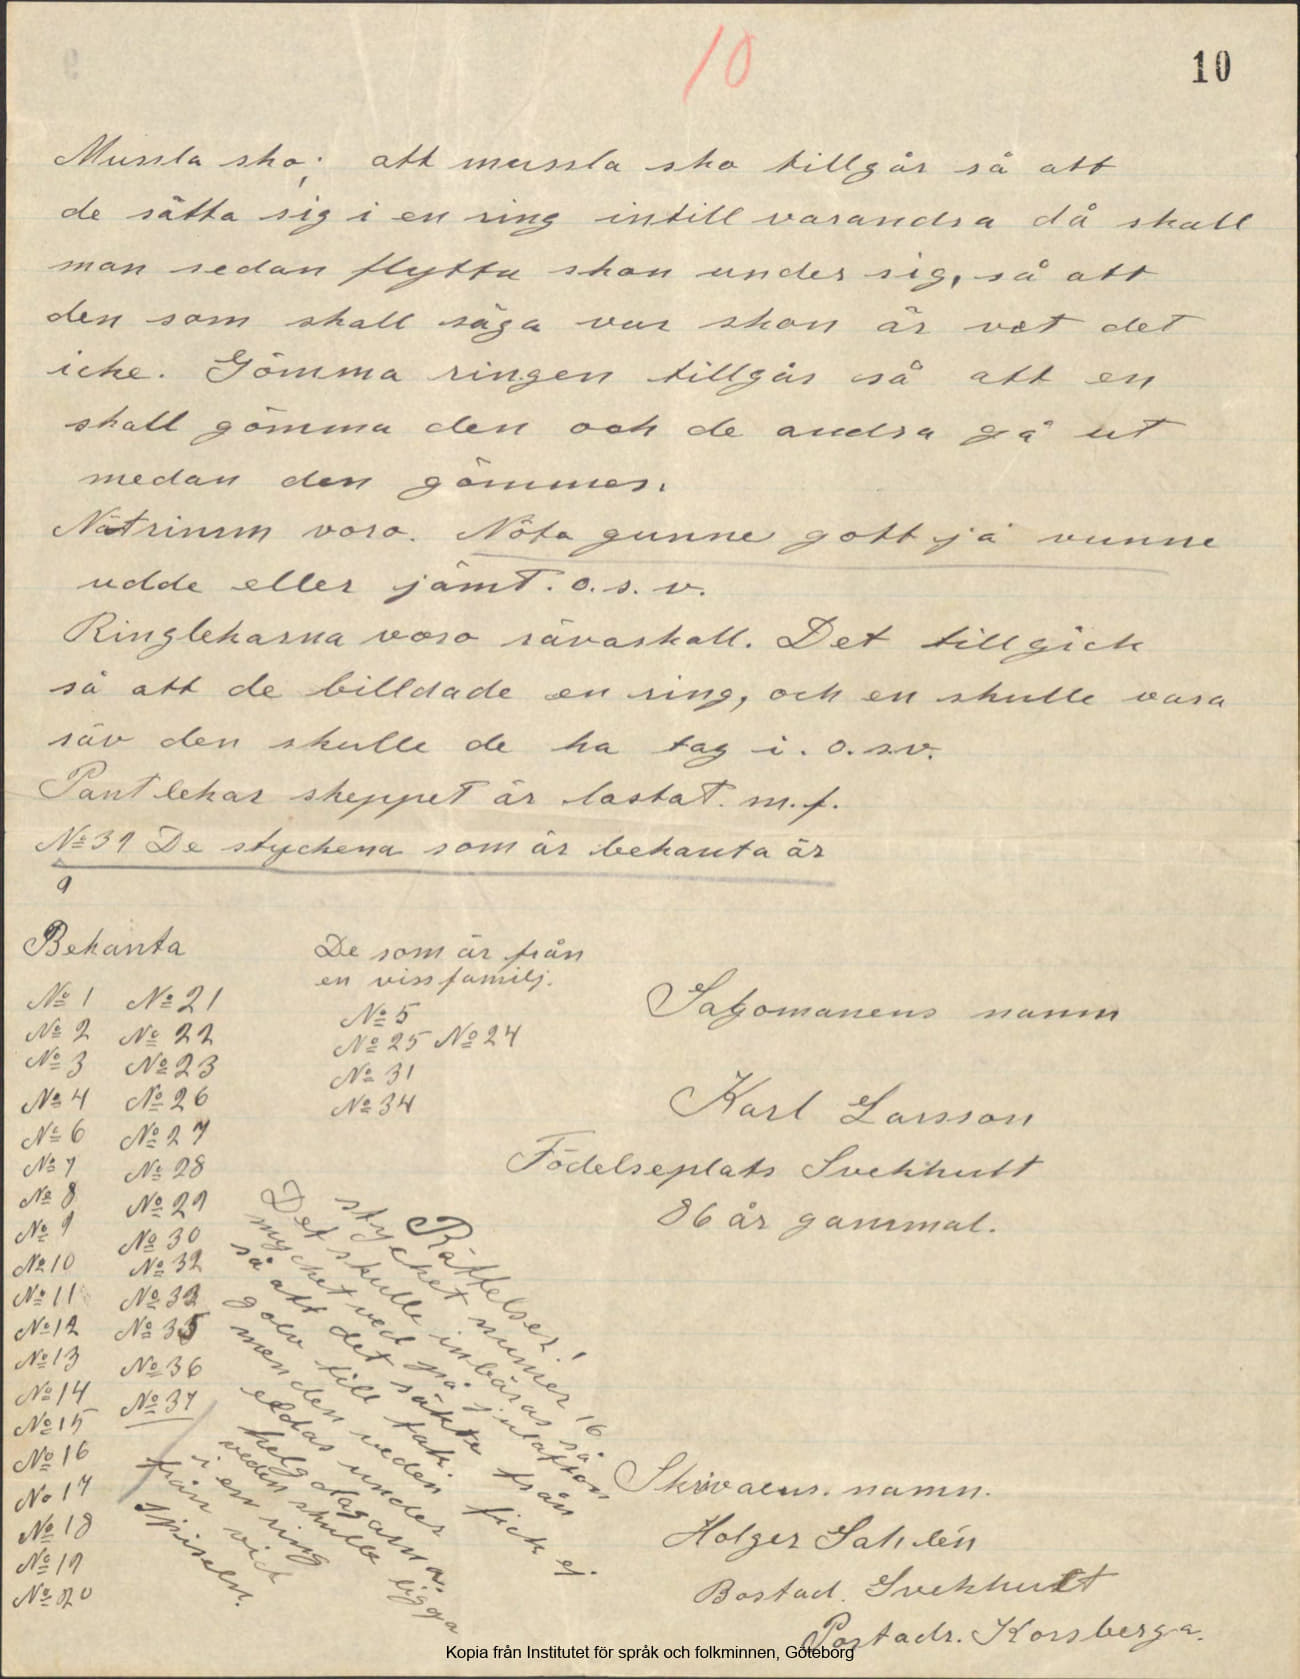 10
10
Mussla sko; att mussla sko tillgår så att
de sätta sig i en ring intill varandra då skall
man sedan flytta skon under sig, så att
den som skall säga var skon är vet det
icke. Gömma ringen tillgår så att en
skall gömma den och de andra gå ut
medan den gömmes.
Nötrimm voro. Nöta gunne gott jä vunne
udde eller jämt. o.s.v.
Ringlekarna voro rävaskall. Det tillgick
så att de billdade en ring, och en skulle vara
räv den skulle de ha tag i. o.s.v.
Pantlekar skeppet är lastat. m.f.
No 39 De styckena som är bekanta är
9
Bekanta
No 1 No 21
No 2 No 22
No 3 No 23
No 4 No 26
No 6 No 27
No 7 No 28
No 8 No 29
No 9 No 30
No 10 No 32
No 11 No 33
No 12 No 35
No 13 No 36
No 14 No 37
No 15
No 16
No 17
No 18
No 19
No 20
De som är från
en viss familj.
No 5
No 25 No 24
No 31
No 34
Rättelser!
stycket numer 16
Det skulle inbäras så
mycket ved på julafton
så att det räkte från
golv till tak.
men den veden fick ej
eldas under
helgdagarna.
veden skulle ligga
i en ring
från vid
spiseln.
Sagomanens namn
Karl Larsson
Födelseplats Svekhult
86 år gammal.
Skrivaens. namn.
Holger Sahlén
Bostad. Svekhult
Postadr. Korsberga.
Kopia från Institutet för språk och folkminnen, Göteborg